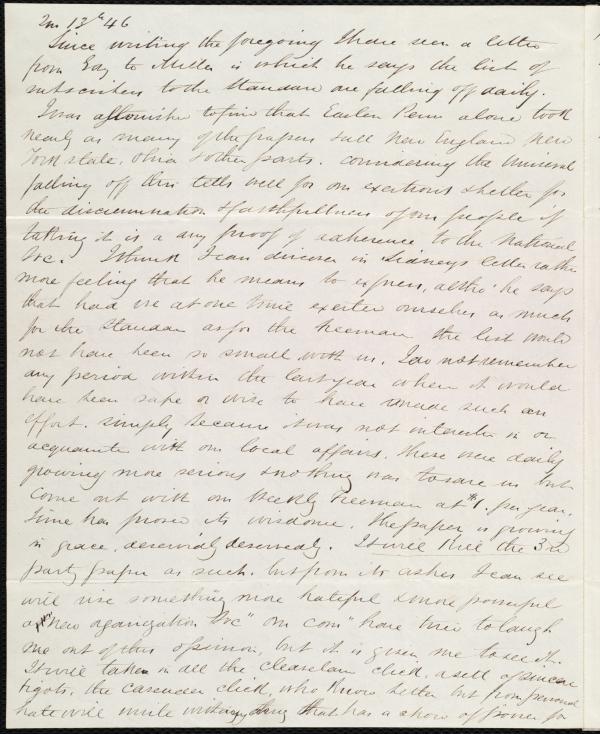 2m 12th 46
Since writing the foregoing I have seen a letter
from Edy to Miller in which he says the list of
subscribers to the Standard are falling off daily.
I was astonished to find that Eastern Penn alone took
nearly as many of the papers as all New England New
York state, Ohio & other parts. considering the universal
falling off this tells well for our exertions & better for
the discrimination & faithfullness of our people if
taking it is a any proof of adherence to the National
Soc. I think I can discover in Sidneys letter rather
more feeling that he means to express, altho' he says
that had we at one time exerted ourselves as much
for the Standard as for the Freeman the list would
not have been so small with us. I do not remember
any period within the last year when it would
have been safe or wise to have made such an
effort. simply because it was not interested in or
acquainted with our local affairs. these were daily
growing more serious & nothing was to save us but
Come out with our Weekly Freeman at $1. per year.
Time has proved its wisdom. The paper is growing
in grace, deservedly deservedly. It will kill the 3rd
party paper as such. but from its ashes I can see
will rise something more hateful & more powerful
a new organization Soc" our com" have tried to laugh
me out of this opinion, but it is given me to see it.
It will take in all the click, a sett of sincere
bigots, the click, who know better but from personal
hate will unite with any thing that has a show of power for